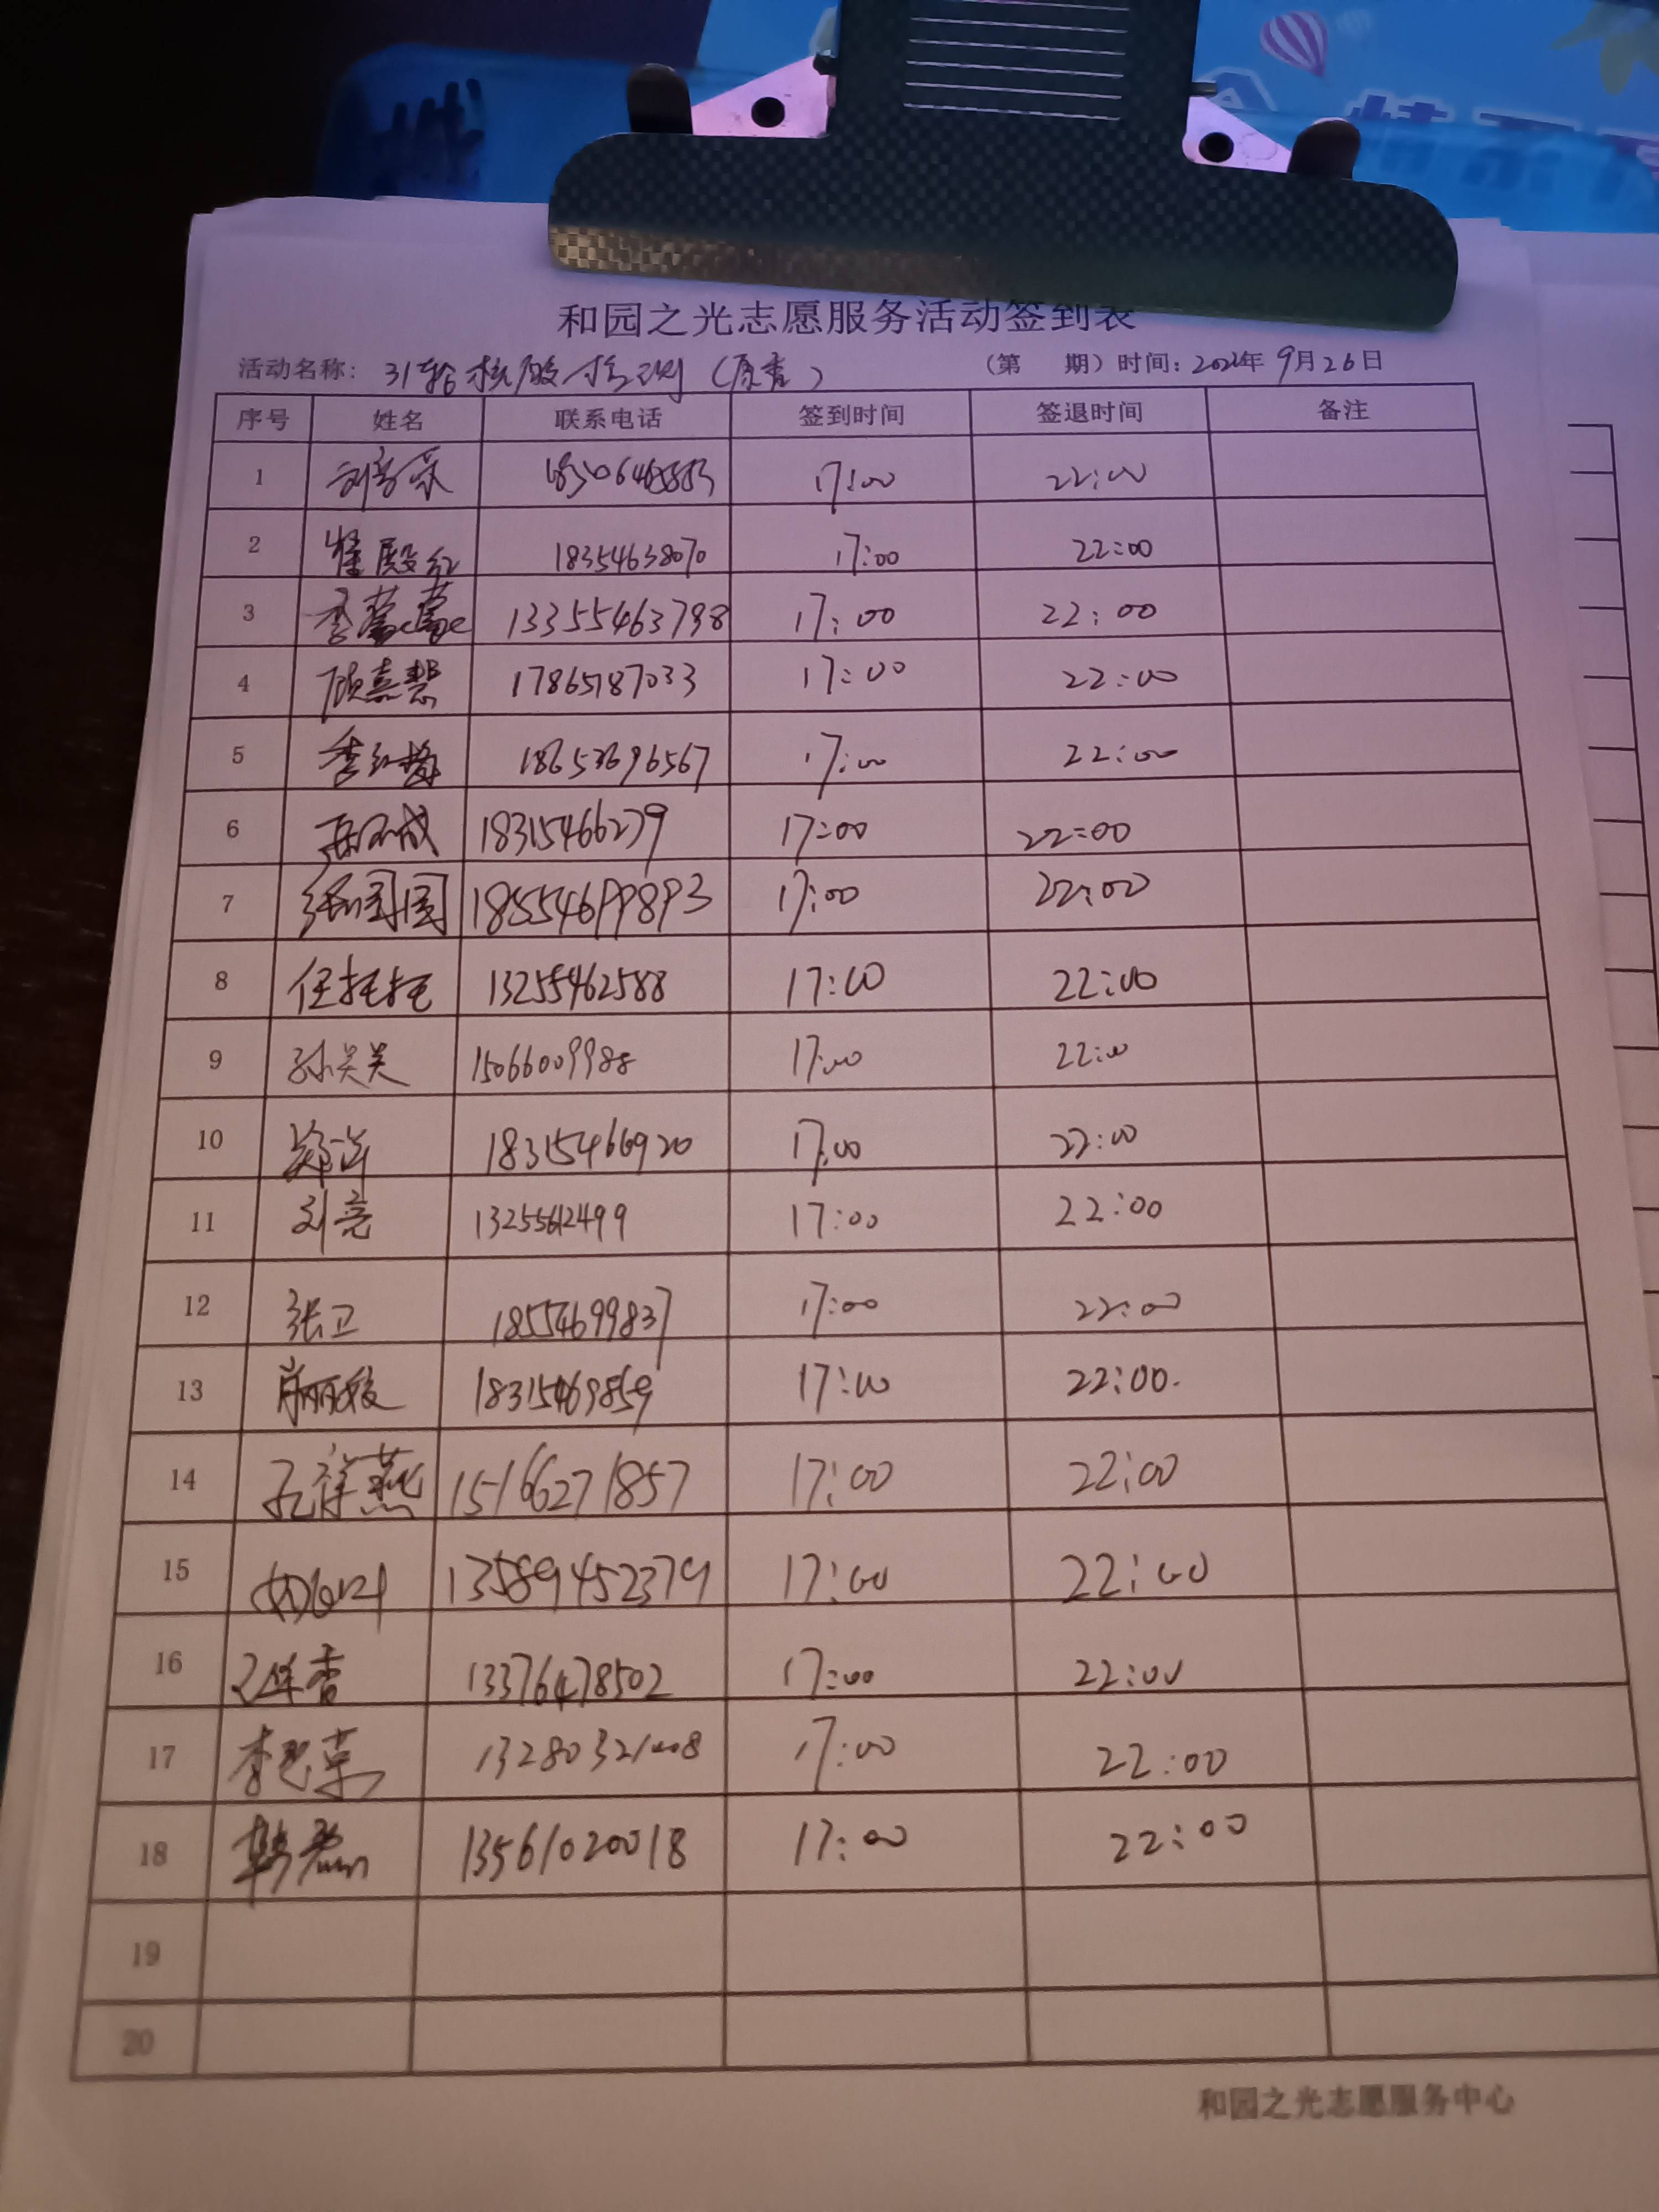 和园之光志愿服务活动签到表
活动名称: 31轮核酸检测 (第 期) 时间: 2022年 9月26日
序号 姓名 联系电话 签到时间 签退时间 备注
1 17:00 22:00
2 殿红 18354638070 17:00 22:00
3 李 13355463798 17:00 22:00
4 顾熹慧 17865187033 17:00 22:00
5 李红梅 18653696567 17:00 22:00
6 18315466279 17:00 22:00
7 张园园 18554699893 17:00 22:00
8 任托托 13255462588 17:00 22:00
9 孙关关 15066009988 17:00 22:00
10 郑 18315466920 17:00 22:00
11 刘亮 17:00 22:00
12 张卫 18554699837 17:00 22:00
13 肖丽 18315469859 17:00 22:00
14 孔祥燕 15166271857 17:00 22:00
15 13589452379 17:00 22:00
16 香 13376478502 17:00 22:00
17 李 荣 13280321008 17:00 22:00
18 韩磊 13561020018 17:00 22:00
19
20
和园之光志愿服务中心